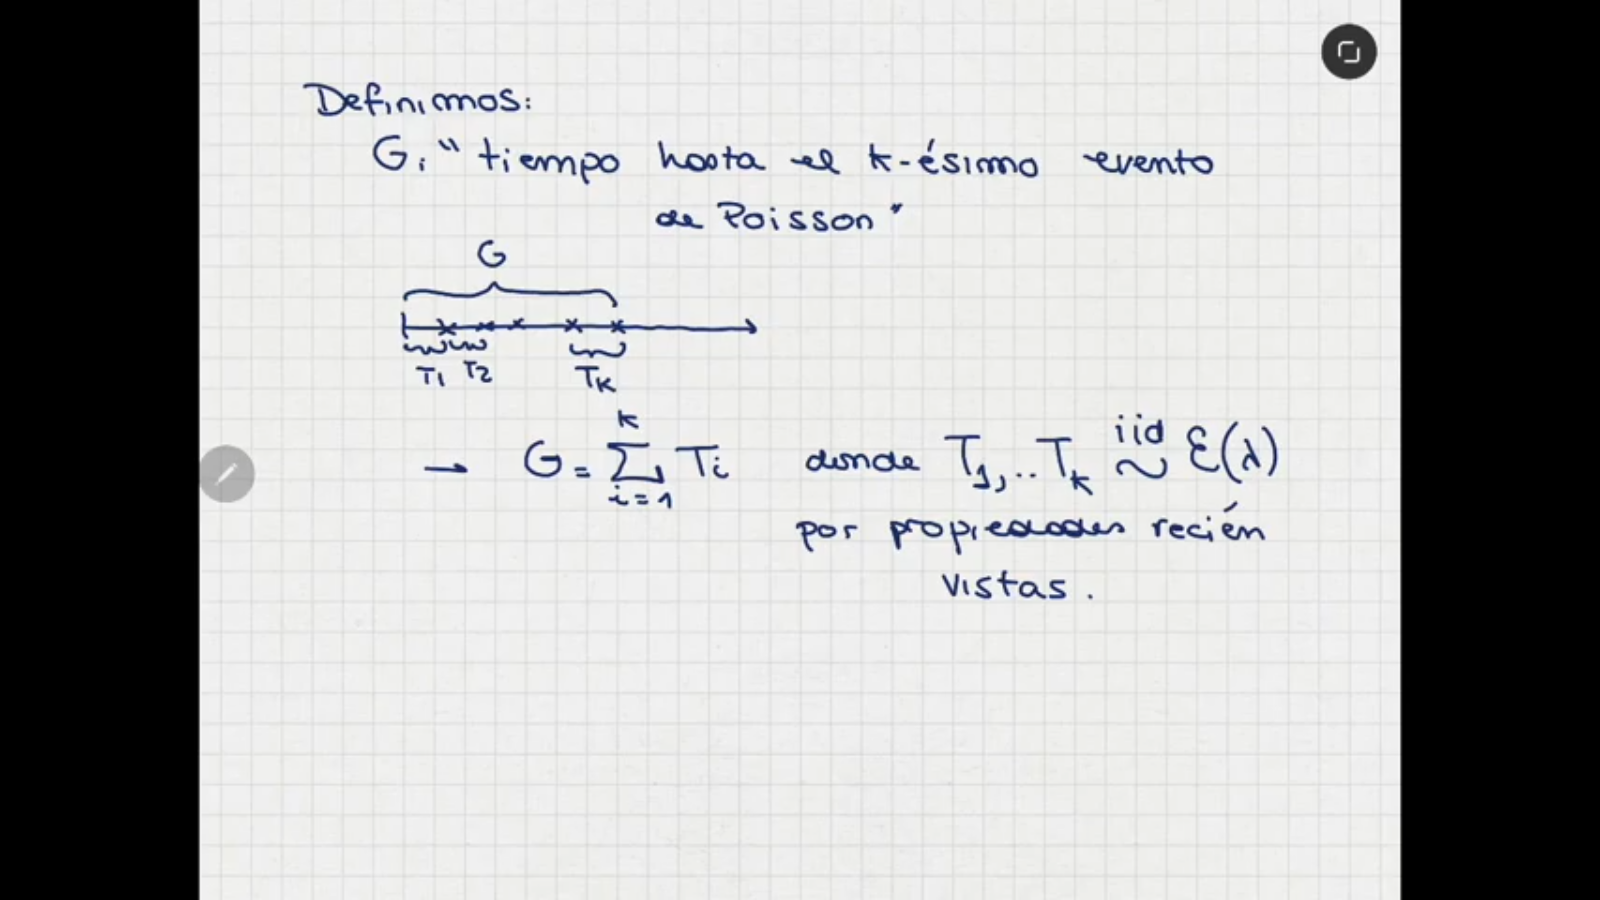 Definimos:
G: "tiempo hasta el k-ésimo evento
de Poisson"
G
T1 T2 Tk
→ G = ∑_{i=1}^{k} Ti donde T1,..Tk iid ~ Ɛ(λ)
por propiedades recién
vistas.